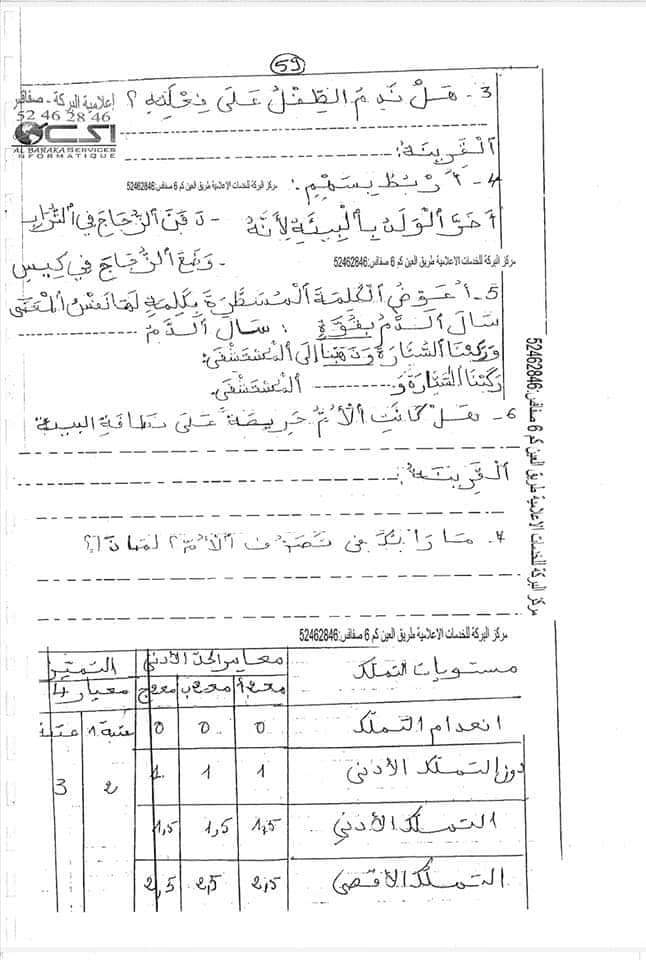 59
3- هَلْ نَدِمَ الطِّفْلُ عَلَى فِعْلَتِهِ ؟
إعلامية البركة - صفاقس
52 46 28 46
CSI
AL BARAKA SERVICES
INFORMATIQUE
اَلْقَرِينَةُ:
4- أَرْبُطُ بِسَهْمٍ:
مركز البركة للخدمات الاعلامية طريق العين كم 6 صفاقس:52462846
أَضَرَّ الْوَلَدُ بِالْبِيئَةِ لِأَنَّهُ - دَفَنَ الزُّجَاجَ فِي التُّرَابِ
مركز البركة للخدمات الاعلامية طريق العين كم 6 صفاقس:52462846
- وَضَعَ الزُّجَاجَ فِي كِيسٍ
5- أُعَوِّضُ الْكَلِمَةَ الْمُسَطَّرَةَ بِكَلِمَةٍ لَهَا نَفْسُ الْمَعْنَى
سَالَ الدَّمُ بِقُوَّةٍ : سَالَ الدَّمُ
وَرَكِبْنَا السَّيَّارَةَ وَذَهَبْنَا إِلَى الْمُسْتَشْفَى:
رَكِبْنَا السَّيَّارَةَ وَ الْمُسْتَشْفَى.
6- هَلْ كَانَتِ الْأُمُّ حَرِيصَةً عَلَى نَظَافَةِ البيئة
اَلْقَرِينَةُ:
7- مَا رَأْيُكَ فِي تَصَرُّفِ الْأُمِّ؟ لِمَاذَا؟
مركز البركة للخدمات الاعلامية طريق العين كم 6 صفاقس:52462846
مركز البركة للخدمات الاعلامية طريق العين كم 6 صفاقس:52462846
مستويات التملك معايير الحد الأدنى التميّز
مع1 مع2 مع3 معيار 4
انعدام التملك 0 0 0 عتبة 1 عتبة
دون التملك الأدنى 1 1 1 2 3
التملك الأدنى 1,5 1,5 1,5
التملك الأقصى 2,5 2,5 2,5